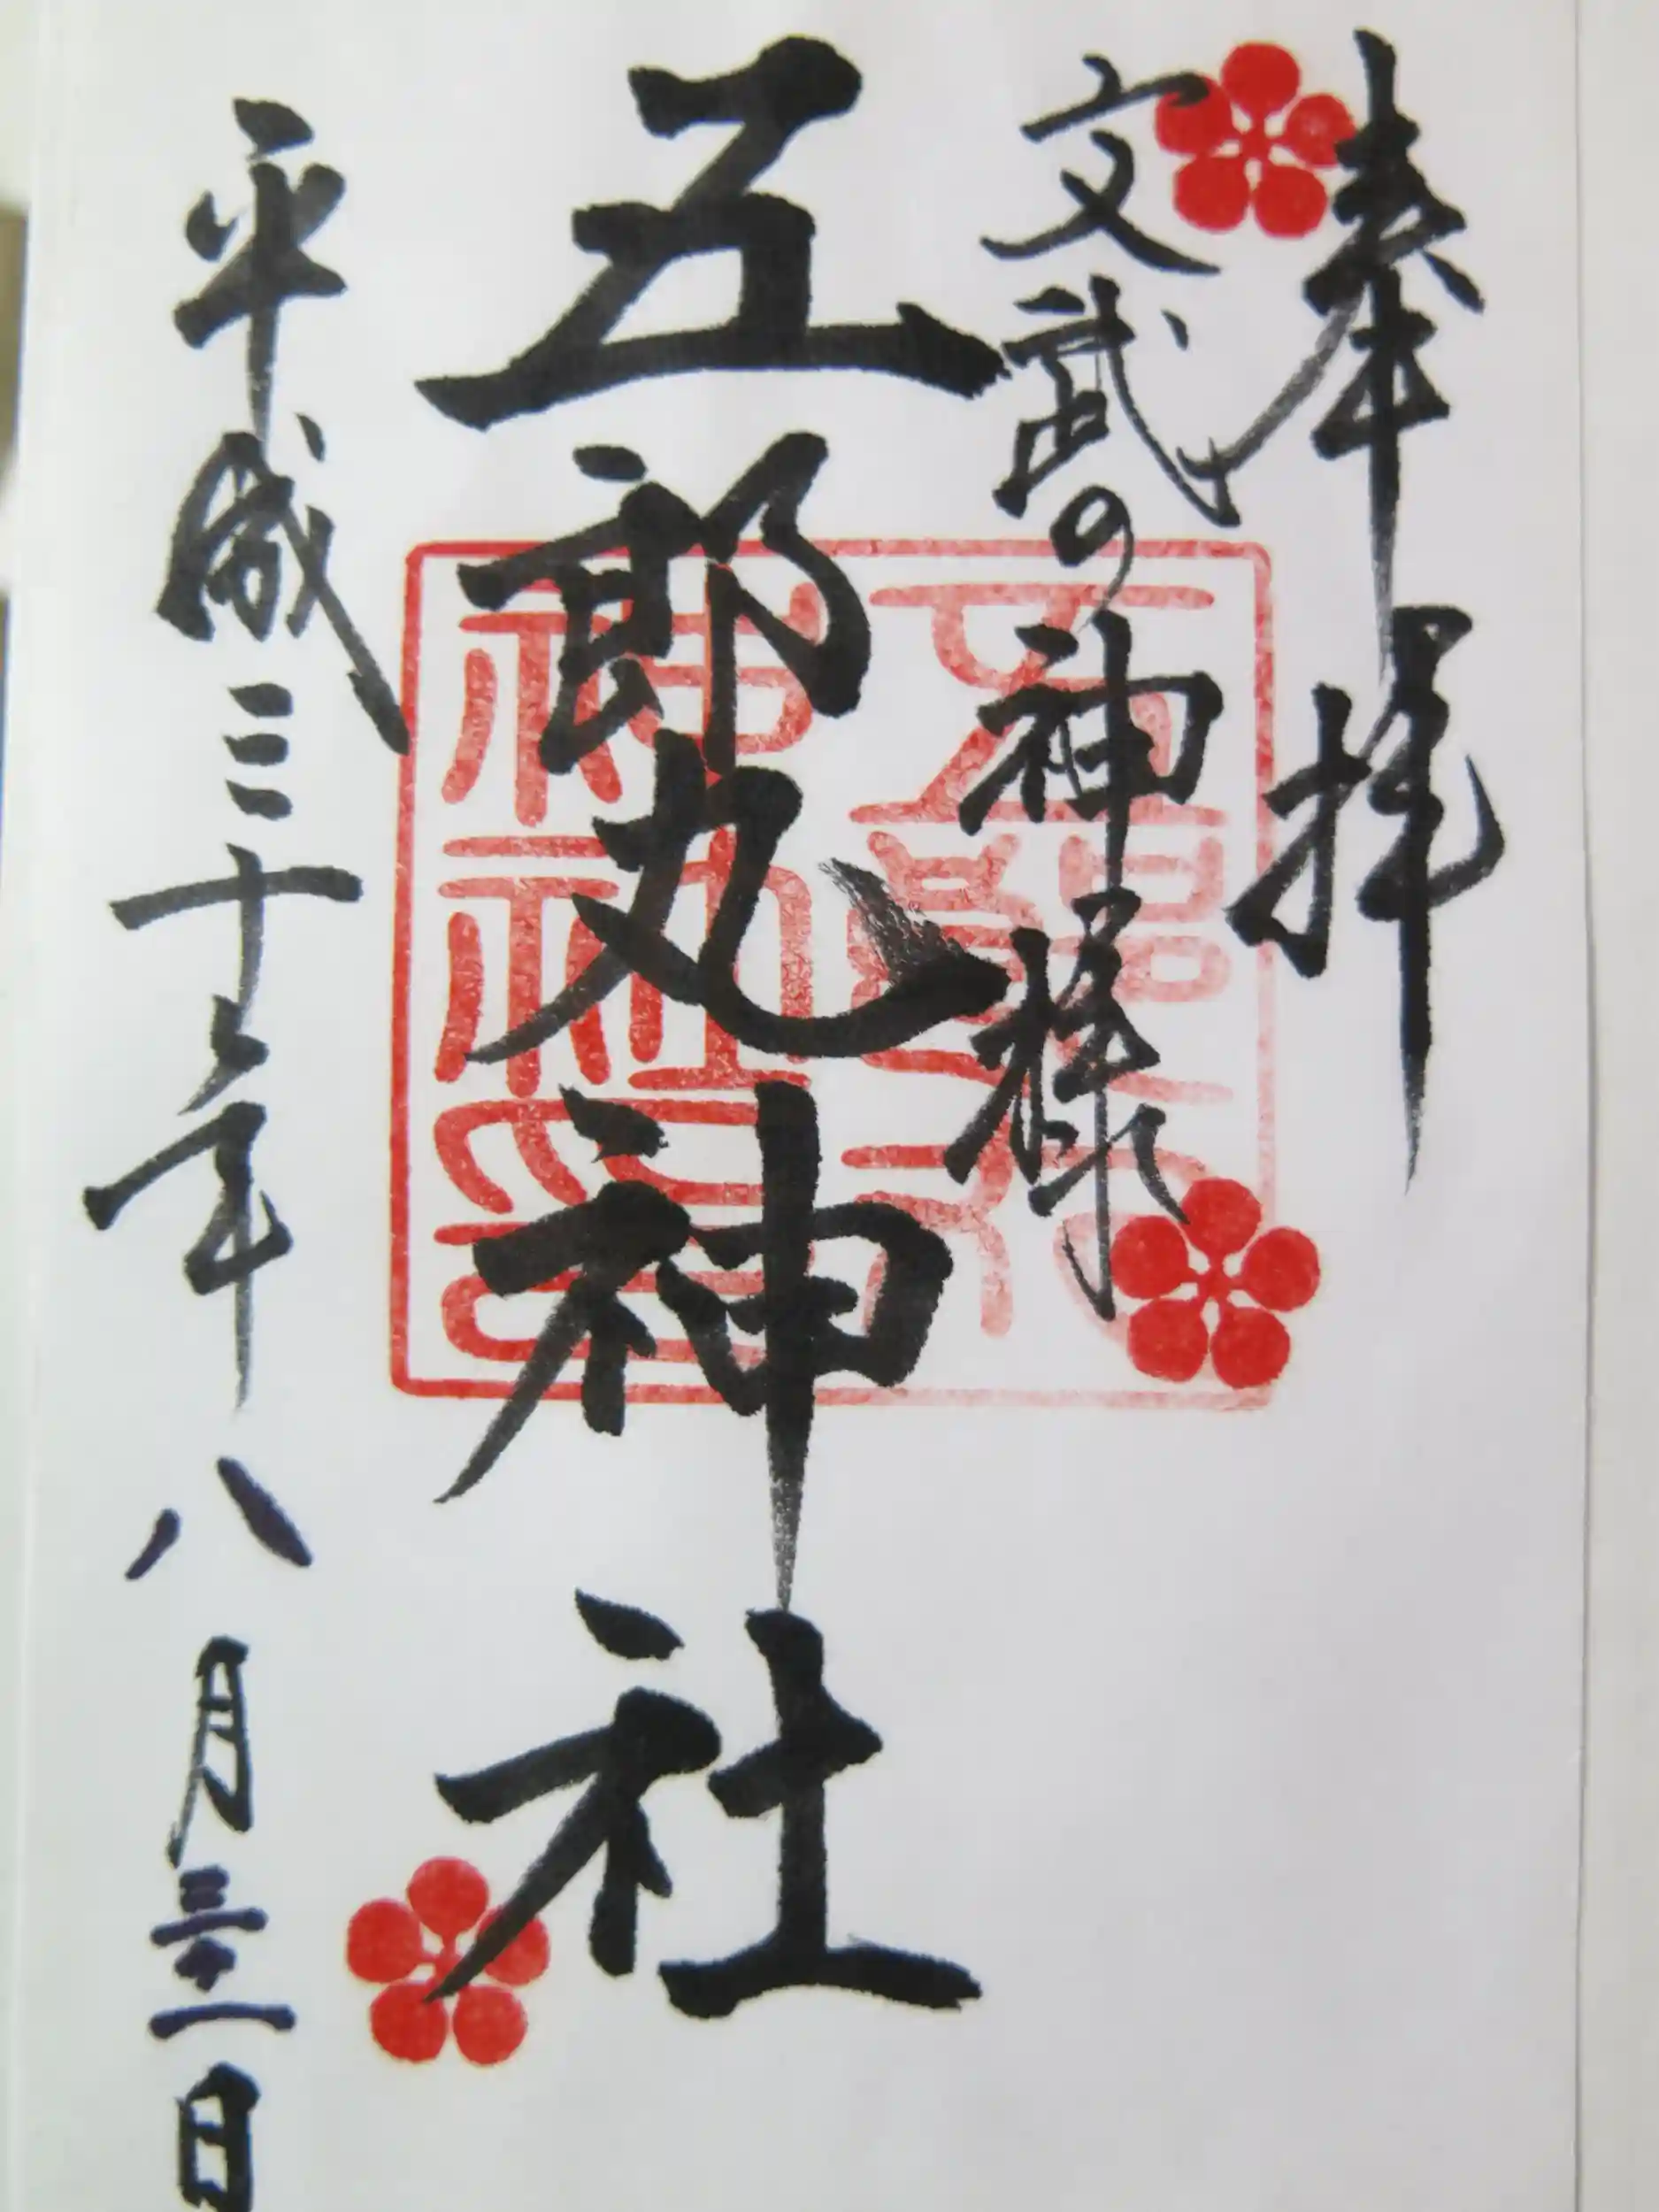 奉拝
文武の神様
五郎丸神社
五郎丸神社印
平成三十年八月三十一日